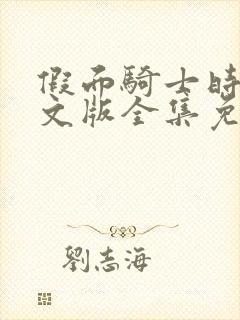 假面騎士時
文版全集免
劉志海